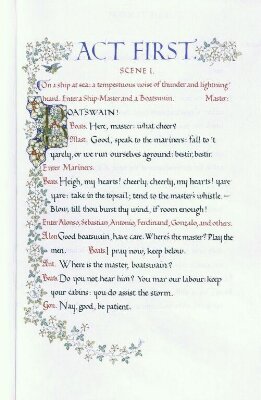 ACT FIRST.
SCENE I.
On a ship at sea: a tempestuous noise of thunder and lightning
heard. Enter a Ship-Master and a Boatswain. Master:
BOATSWAIN!
Boats. Here, master: what cheer?
Mast. Good, speak to the mariners: fall to 't
yarely, or we run ourselves aground: bestir, bestir.
Enter Mariners.
Boats. Heigh, my hearts! cheerly, cheerly, my hearts! yare
yare: take in the topsail; tend to the master's whistle. –
Blow, till thou burst thy wind, if room enough!
Enter Alonso, Sebastian, Antonio, Ferdinand, Gonzalo, and others.
Alon. Good boatswain, have care. Where's the master? Play the
men. Boats. I pray now, keep below.
Ant. Where is the master, boatswain?
Boats. Do you not hear him? You mar our labour: keep
your cabins: you do assist the storm.
Gon. Nay, good, be patient.